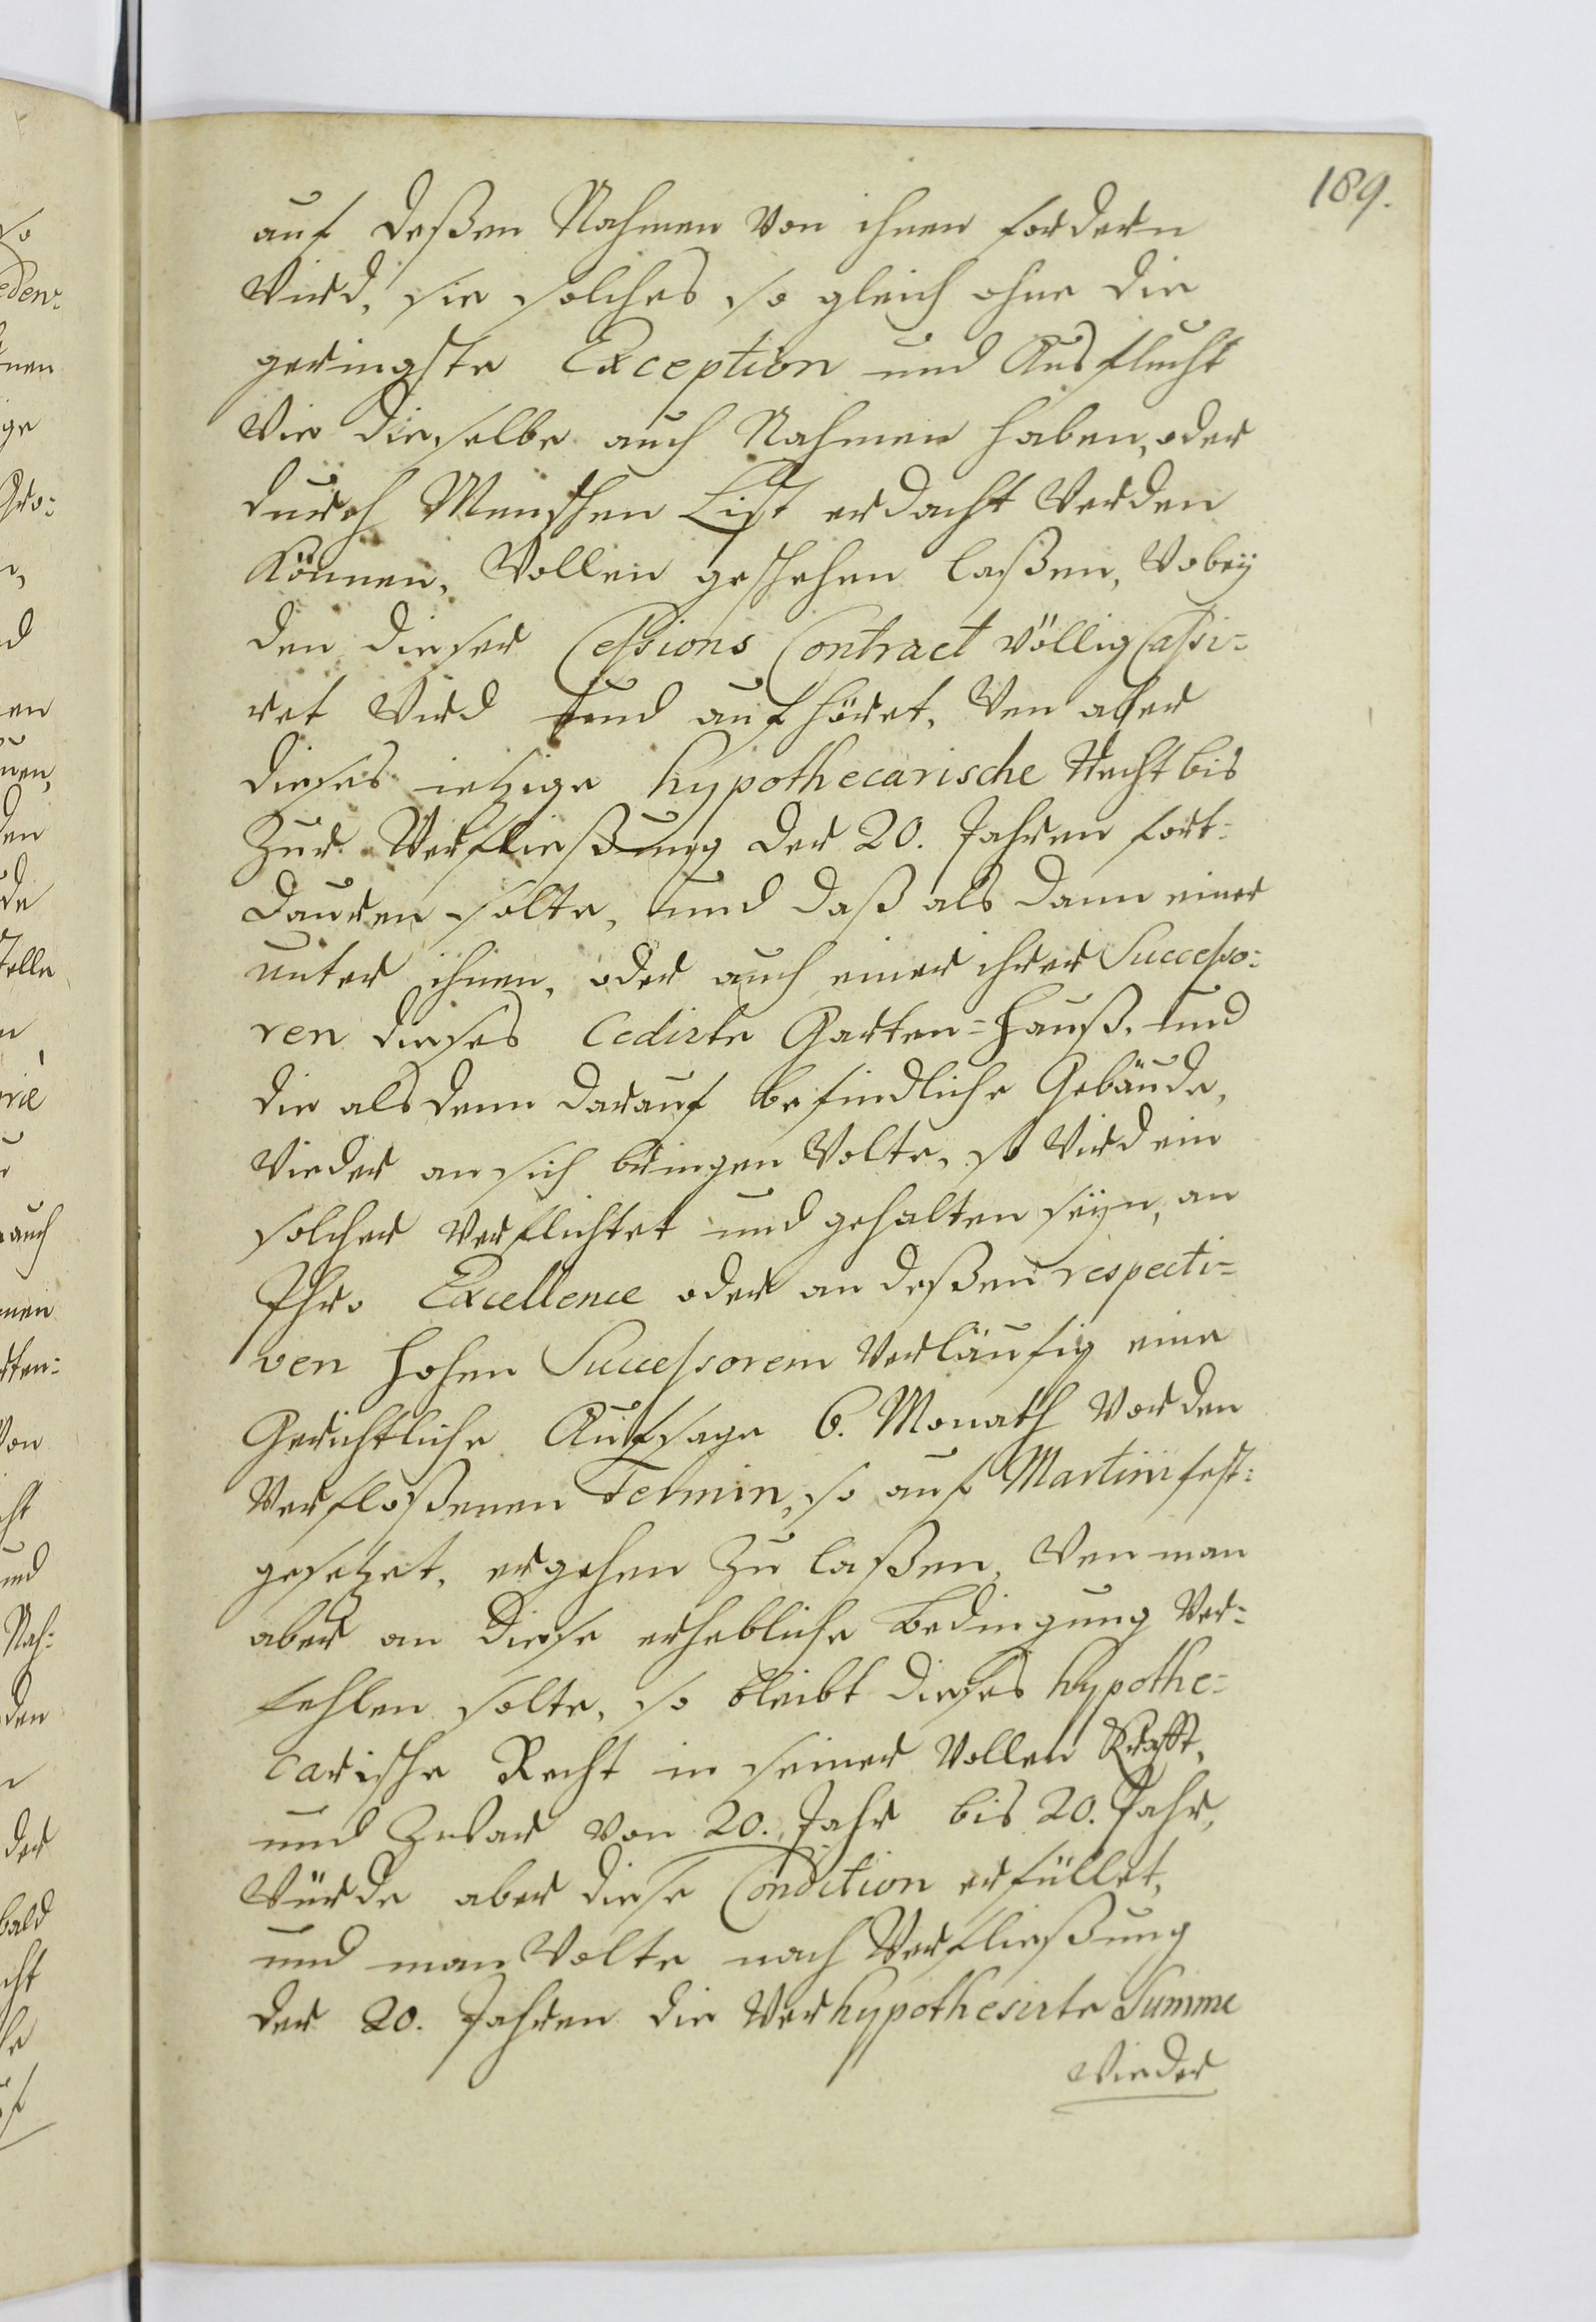 189.
auf deßen Nahmen von ihnen fordern
wird, sie solches so gleich ohne die
geringste Exception und Ausflucht
wie dieselbe auch Nahmen haben, oder
durch Menschen List erdacht werden
können, wollen geschehen laßen, wobey
den dieser Cessions Contract völlig Cassi=
ret wird und aufhöret, wen aber
dieses ietzige hypothecarische Recht bis
zur Verfließung der 20. Jahren fort=
dauren solte, und daß als dann einer
unter ihnen, oder auch einer ihrer Successo=
ren dieses Cedirte Garten=Hauß, und
die alsdenn darauf befindliche Gebäude,
wieder an sich bringen wolte, so wird ein
solcher verflichtet und gehalten seyn, an
Ihro Excellence oder an deßen respecti=
ven hohen Successorem verläufig eine
Gerichtliche Aufsage 6. Monath vor den
verfloßenen Termin, so auf Martini fest=
gesetzet, ergehen zu laßen, wen man
aber an diese erhebliche Bedingung ver=
fehlen solte, so bleibt dieses hypothe=
carische Recht in seiner vollen Krafft,
und zwar von 20. Jahr bis 20. Jahr,
würde aber diese Condition erfüllet,
und man wolte nach Verfließung
der 20. Jahren die verhypothesirte Summe
wieder